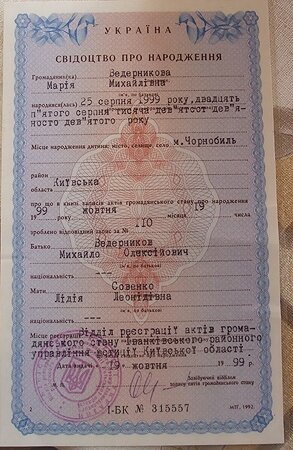 УКРАЇНА
СВІДОЦТВО ПРО НАРОДЖЕННЯ
Громадянин(ка) Ведерникова
Марія Михайлівна
ім'я, по батькові
народився(лась) 25 серпня 1999 року, двадцять
п"ятого серпня тисяча дев'ятсот дев'ян-
носто дев'ятого року
Місце народження дитини: місто, селище, село м.Чорнобиль
район
область Київська
про що в книзі записів актів громадянського стану про народження
99 жовтня 19
19 року місяця числа
зроблено відповідний запис за № 110
Батько Ведерников
Михайло Олексійович
ім'я, по батькові
національність ---
Мати Совенко
Лілія Леонідівна
ім'я, по батькові
національність ---
Місце реєстрації Відділ реєстрації актів грома-
дянського стану Іванківського районного
управління юстиції Київської області
Дата видачі 19 жовтня 1999 р.
М. П.
Завідуючий відділом
запису актів громадянського стану
2
І-БК № 315557
МПГ, 1992.